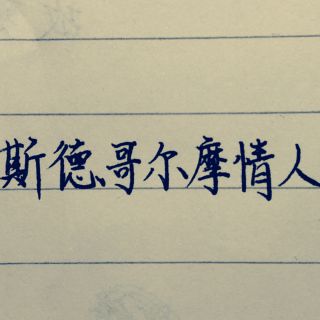 斯德哥尔摩情人